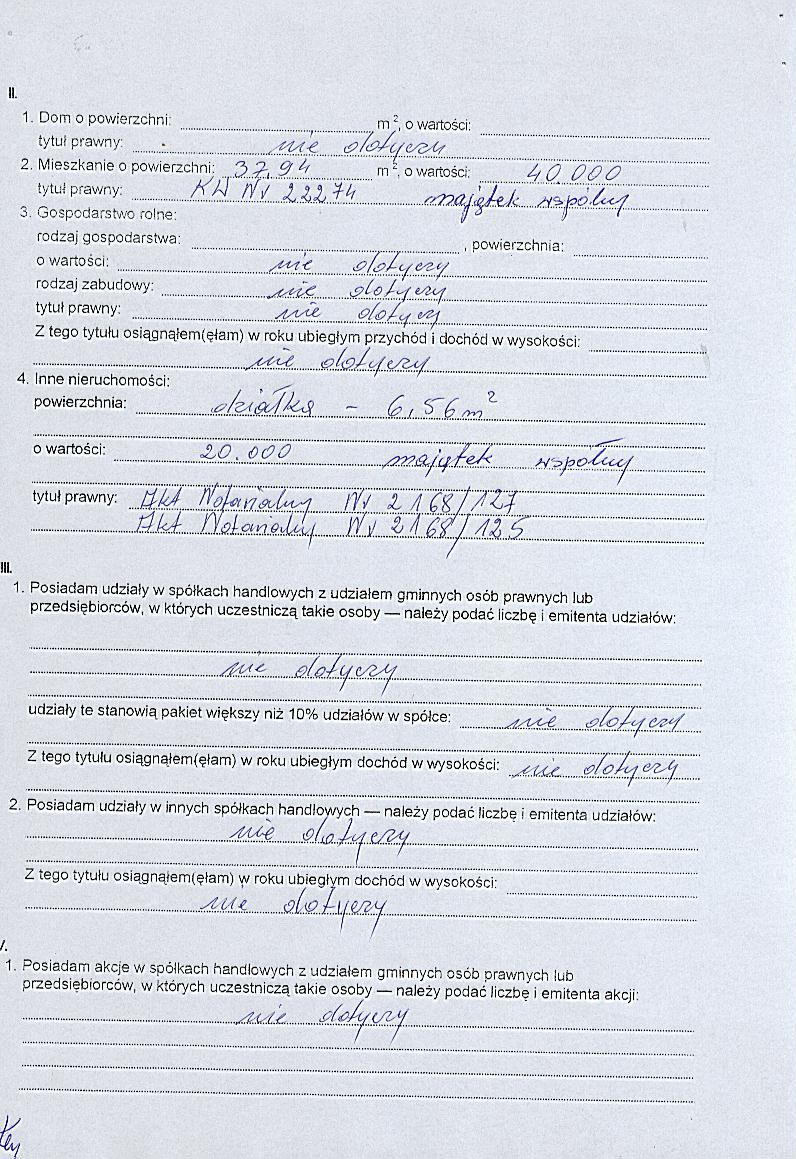 II.
1. Dom o powierzchni: m², o wartości:
tytuł prawny: nie dotyczy
2. Mieszkanie o powierzchni: 37,94 m², o wartości: 40.000
tytuł prawny: KW Nr 22274 majątek wspólny
3. Gospodarstwo rolne:
rodzaj gospodarstwa: , powierzchnia:
o wartości: nie dotyczy
rodzaj zabudowy: nie dotyczy
tytuł prawny: nie dotyczy
Z tego tytułu osiągnąłem(ęłam) w roku ubiegłym przychód i dochód w wysokości:
nie dotyczy
4. Inne nieruchomości:
powierzchnia: działka – 6,56 m²
o wartości: 20.000 majątek wspólny
tytuł prawny: Akt Notarialny Nr 2168/127
Akt Notarialny Nr 2168/125
III.
1. Posiadam udziały w spółkach handlowych z udziałem gminnych osób prawnych lub
przedsiębiorców, w których uczestniczą takie osoby — należy podać liczbę i emitenta udziałów:
nie dotyczy
udziały te stanowią pakiet większy niż 10% udziałów w spółce: nie dotyczy
Z tego tytułu osiągnąłem(ęłam) w roku ubiegłym dochód w wysokości: nie dotyczy
2. Posiadam udziały w innych spółkach handlowych — należy podać liczbę i emitenta udziałów:
nie dotyczy
Z tego tytułu osiągnąłem(ęłam) w roku ubiegłym dochód w wysokości:
nie dotyczy
V.
1. Posiadam akcje w spółkach handlowych z udziałem gminnych osób prawnych lub
przedsiębiorców, w których uczestniczą takie osoby — należy podać liczbę i emitenta akcji:
nie dotyczy